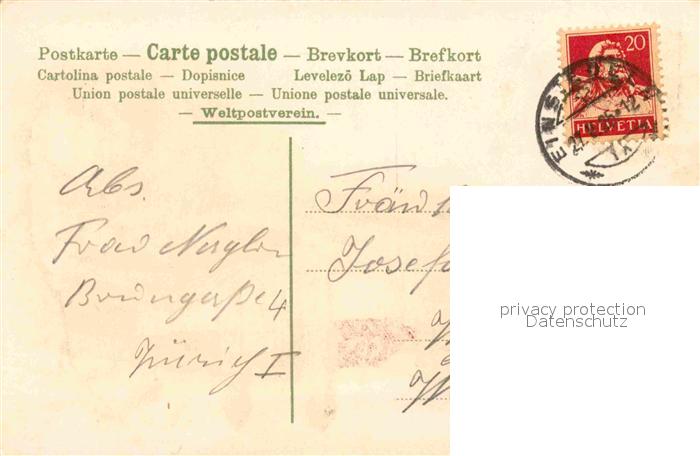 Postkarte — Carte postale — Brevkort — Brefkort
Cartolina postale — Dopisnice Levelező Lap — Briefkaart
Union postale universelle — Unione postale universale.
— Weltpostverein. —
20
HELVETIA
EINSIEDELN
Abs.
Frau
Brungaße 4
Zürich I
Josef
privacy protection
Datenschutz